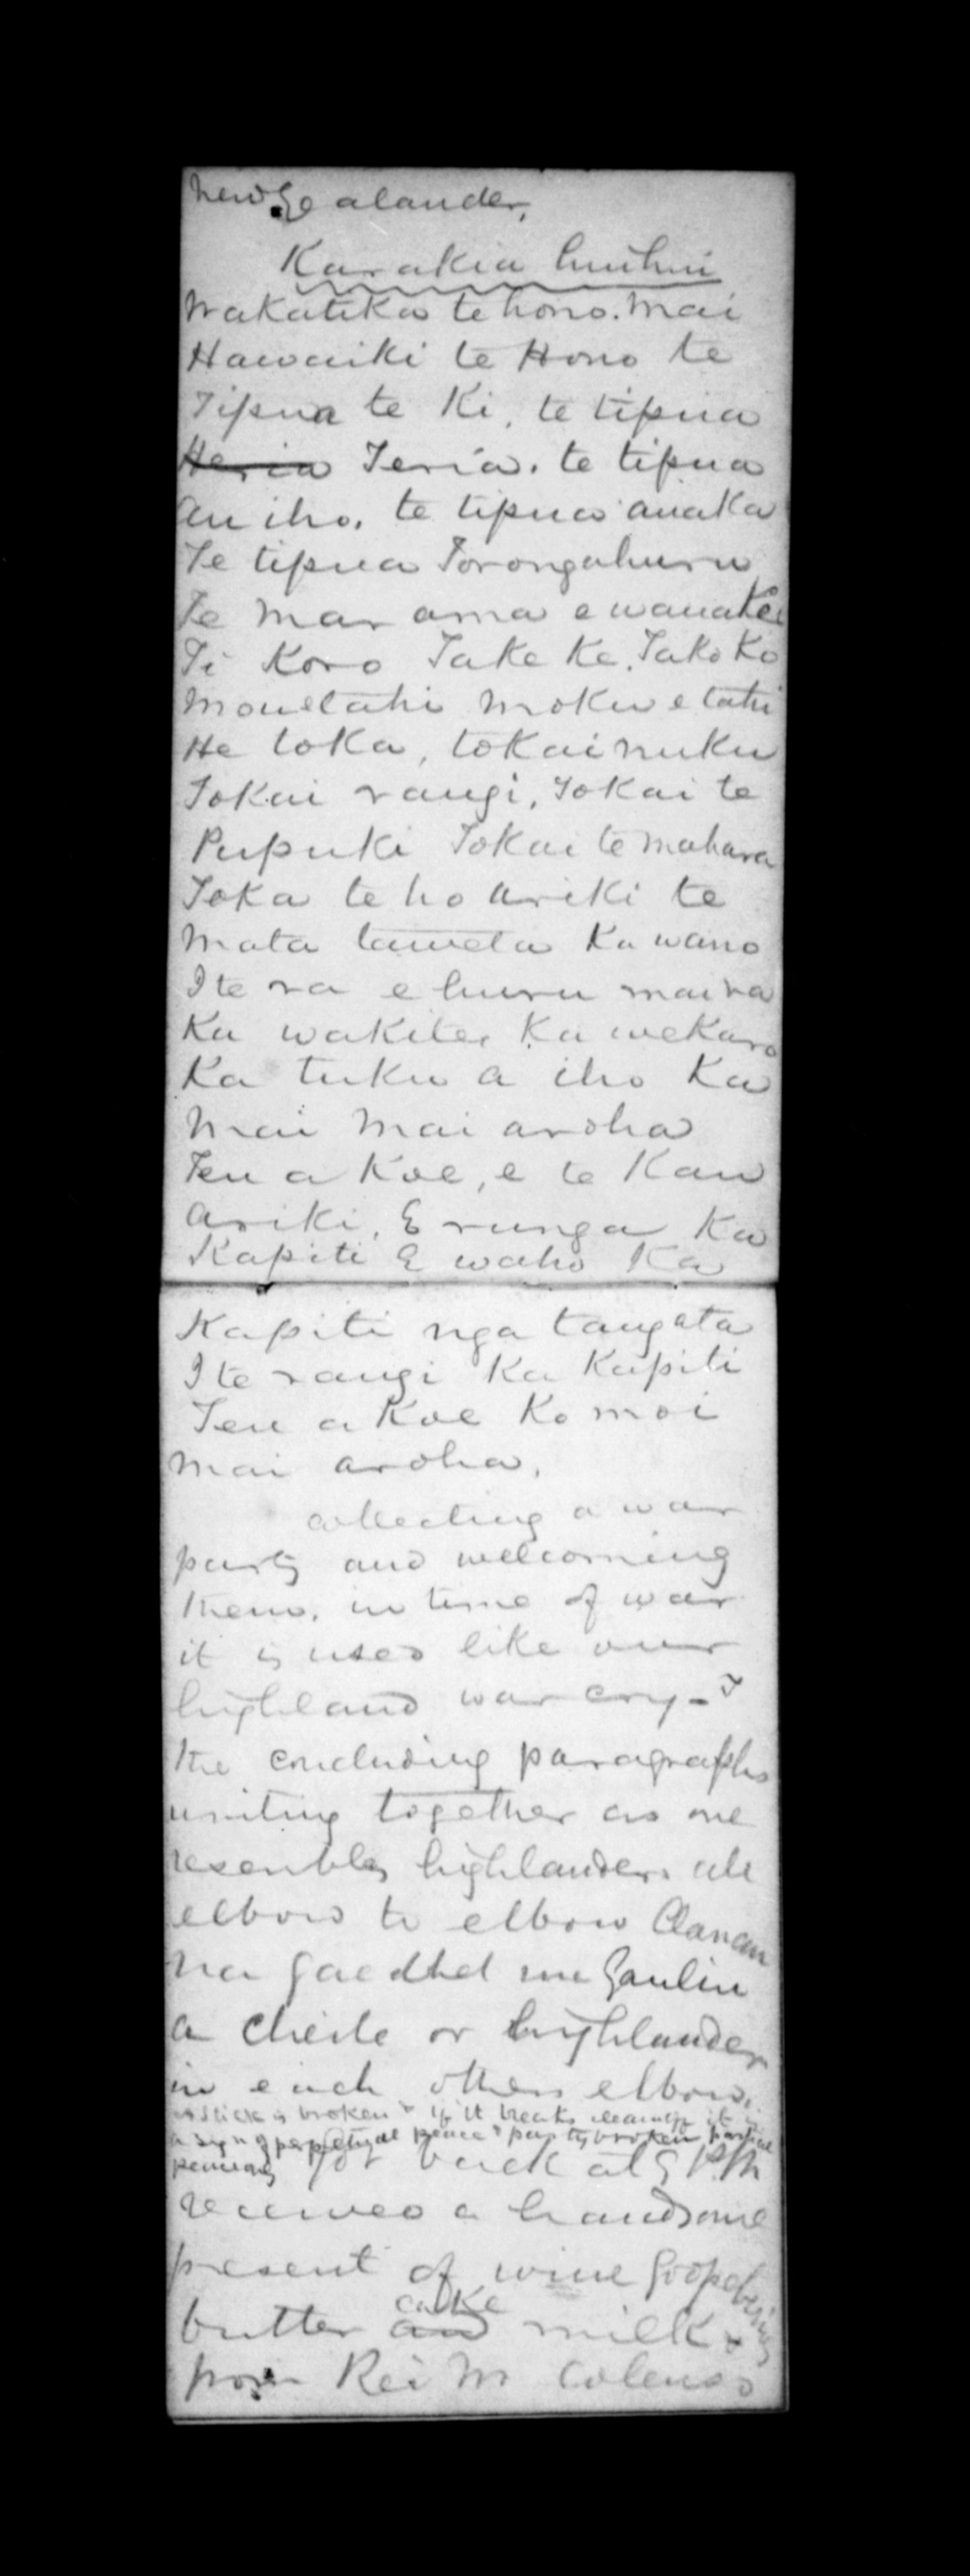 New Zealander,
Karakia huihui
Wakatika te hono. Mai
Hawaiki te Hono te
Tipua te Ki, te tipua
Heria Teria. te tipua
au iho. te tipua auaka
Te tipua Torongahuru
Te mar ama e wanakei
Ti Koro Take Ke. Tako Ko
Mouetahi Moku e tahi
He toka, tokainuku
Tokai rangi, Tokai te
Pupuki Tokai te mahara
Toka te ho Ariki te
Mata taueta Ka wano
I te ra e huru maira
Ka wakitei Ka wekaro
Ka tuku a iho Ka
Mai Mai aroha
Ten a Koe, e te Kau
Ariki, E runga Ka
Kapiti E waho Ka
Kapiti nga tangata
I te rangi Ka Kapiti
Ten a Koe Ko moi
Mai aroha,
collecting a war
party and welcoming
them. in time of war
it is used like our
highland war cry - &
the concluding paragraphs
uniting together as one
resembles highlanders all
elbow to elbow Clanan
na gaedhel me Gaulin
a cheile or highlander
in each others elbow.
a stick is broken & if it breaks cleanly it is
a sign of perpetual peace & partly broken partial
Got back at 5 P.M
received a handsome
present of wine Gooseberies
butter an cake milk &
from Rei M Colenso